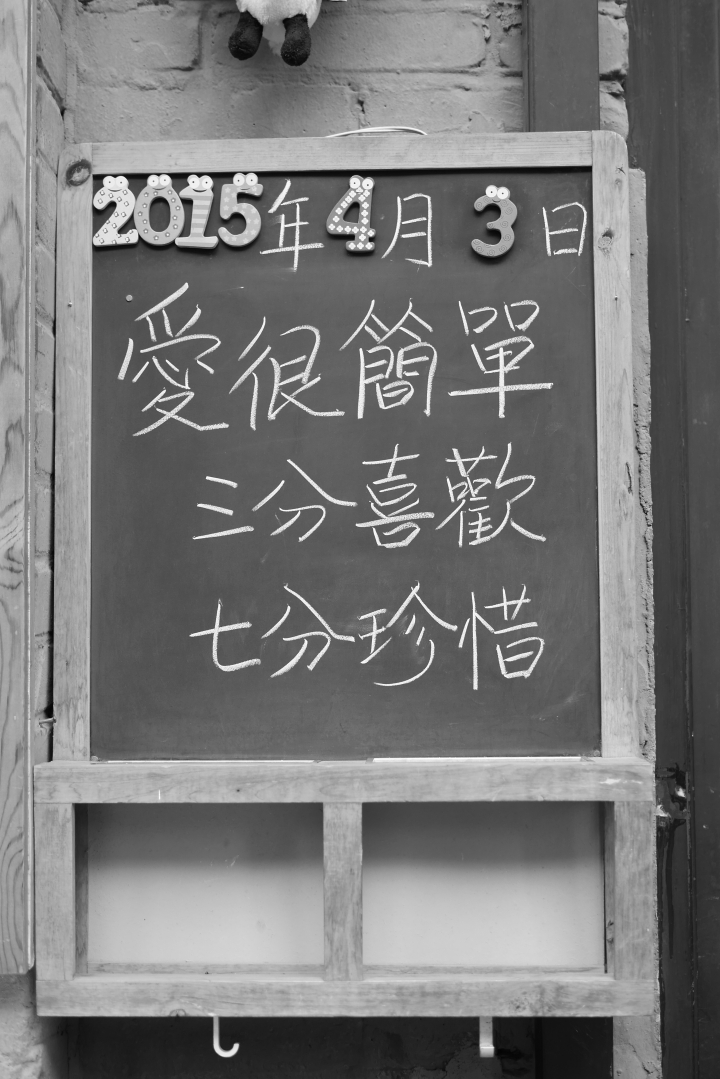 2015年4月3日
愛很簡單
三分喜歡
七分珍惜